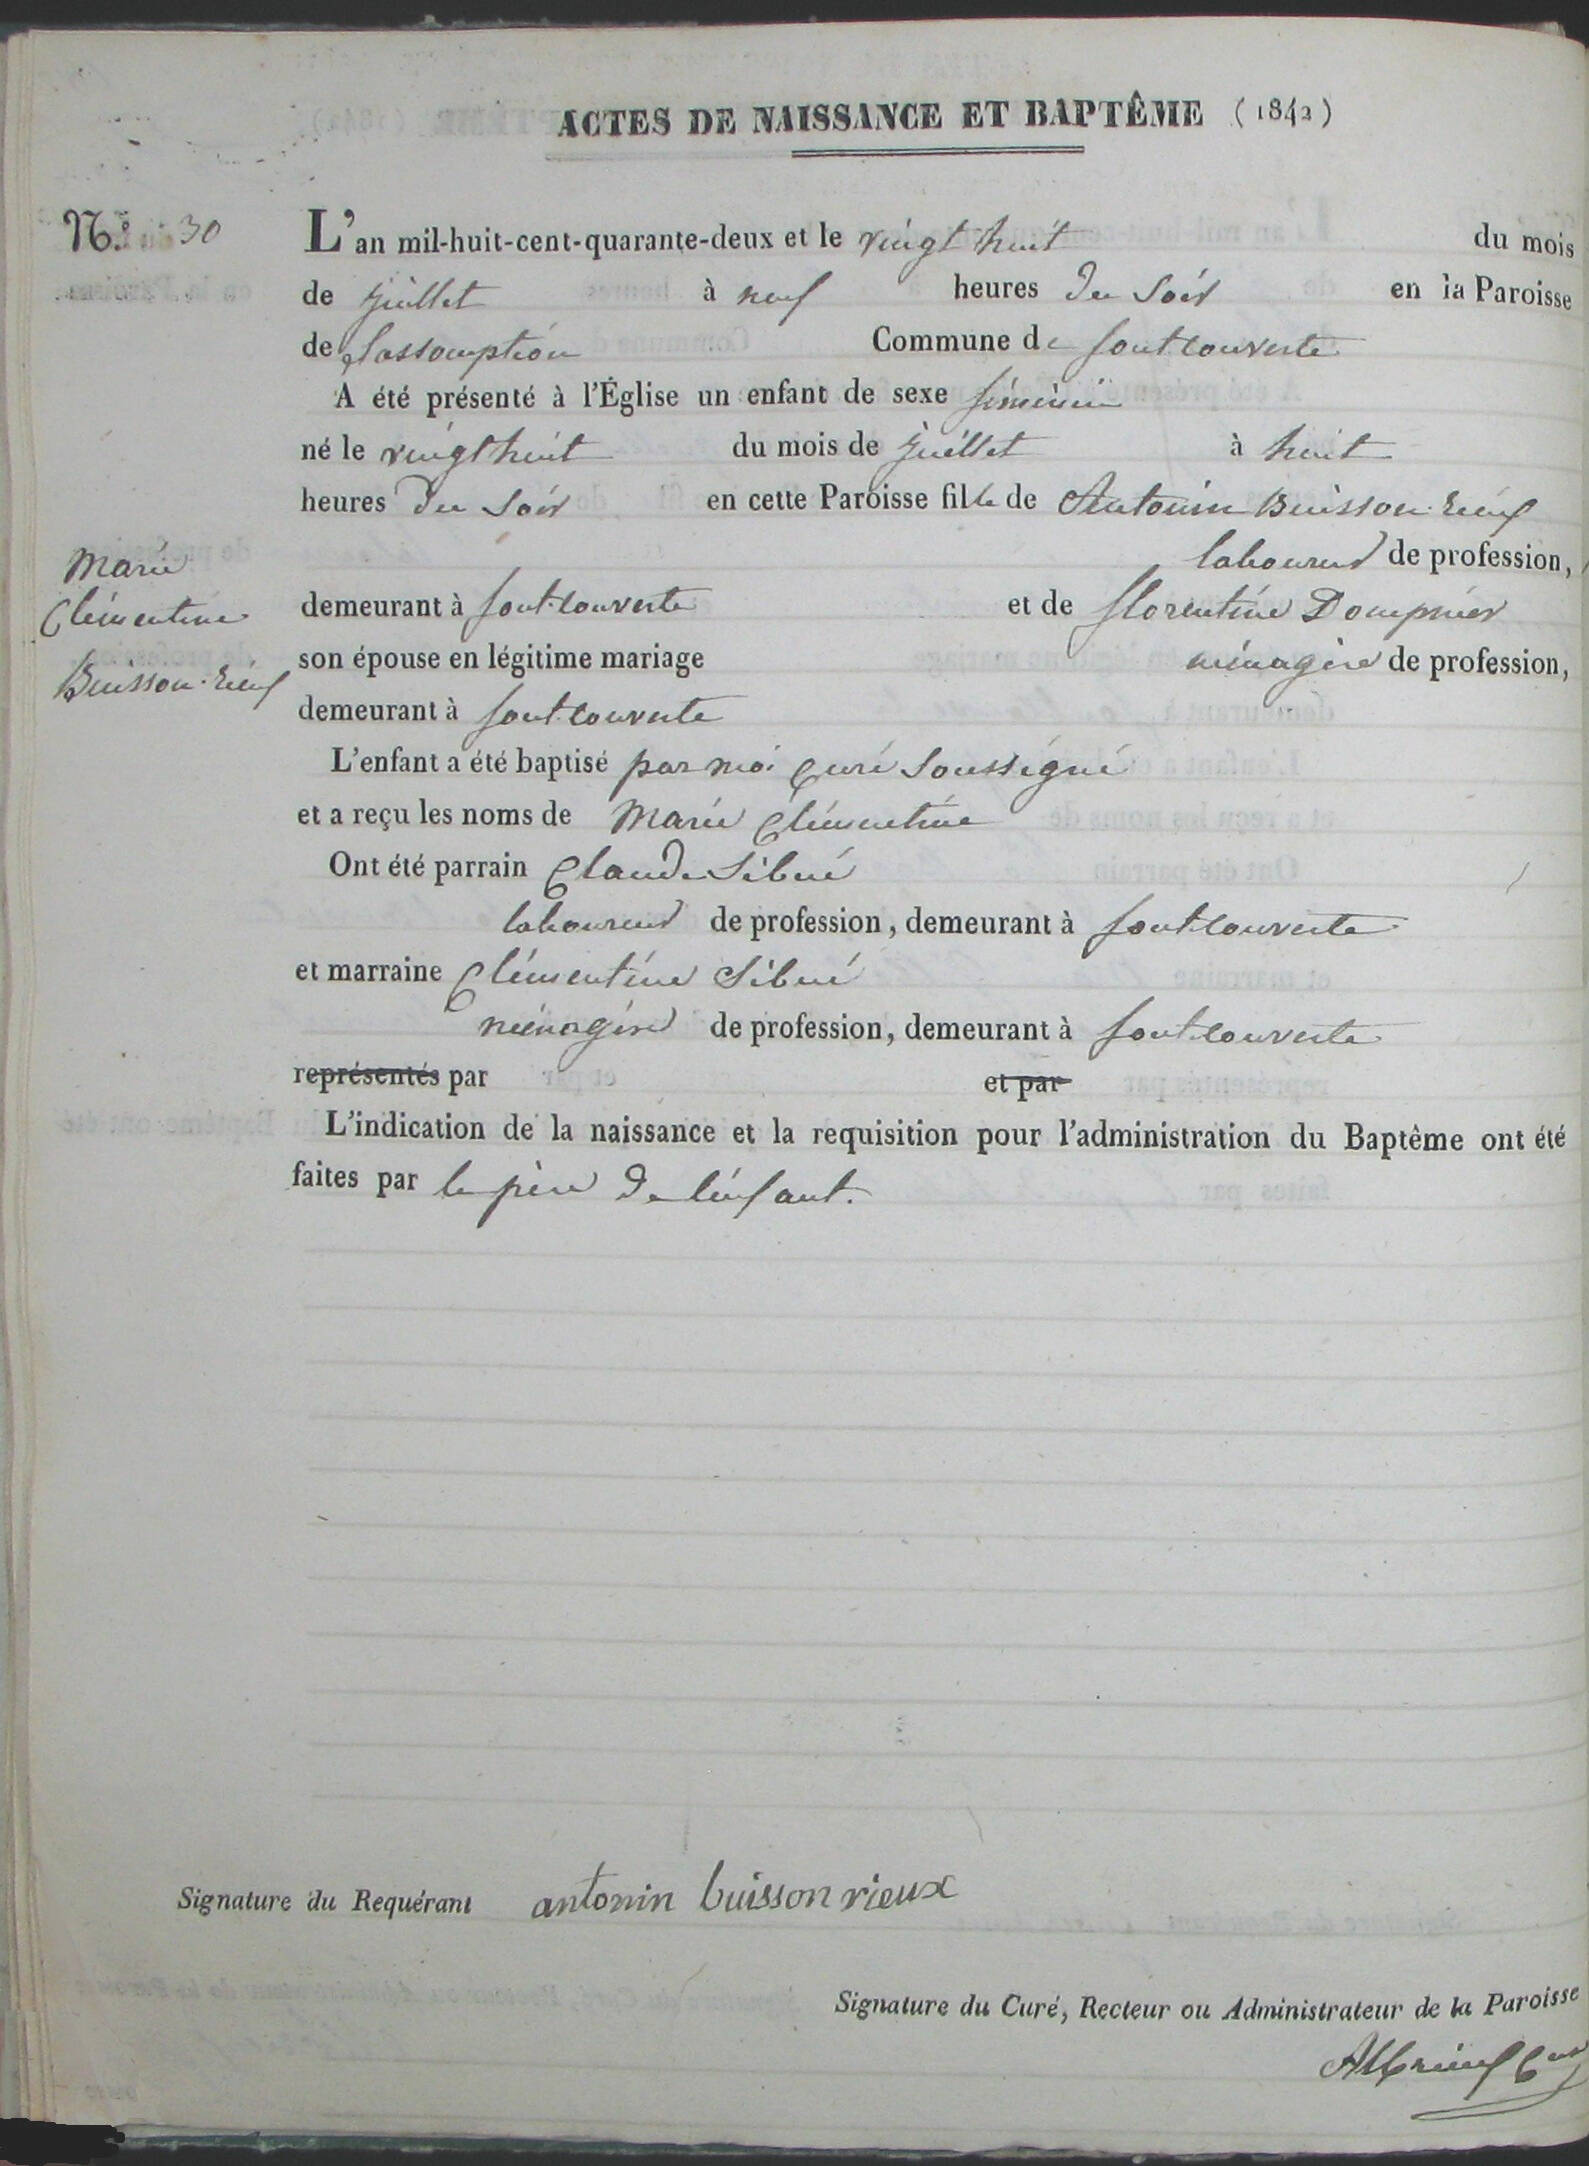 ACTES DE NAISSANCE ET BAPTÊME (1842)
N.° 30
L'an mil-huit-cent-quarante-deux et le vingt huit du mois
de juillet à neuf heures du soir en la Paroisse
de l'assomption Commune de fontcouverte
A été présenté à l'Église un enfant de sexe féminin
né le vingt huit du mois de juillet à huit
heures du soir en cette Paroisse fille de Antonin Buisson-rieux
laboureur de profession,
Marie
Clémentine
Buisson-rieux
demeurant à fontcouverte et de florentine Dompnier
son épouse en légitime mariage ménagère de profession,
demeurant à fontcouverte
L'enfant a été baptisé par moi curé soussigné
et a reçu les noms de Marie Clémentine
Ont été parrain Claude Sibué
laboureur de profession, demeurant à fontcouverte
et marraine Clémentine Sibué
ménagère de profession, demeurant à fontcouverte
représentés par et par
L'indication de la naissance et la requisition pour l'administration du Baptême ont été
faites par le père de l'enfant.
Signature du Requérant antonin buisson rieux
Signature du Curé, Recteur ou Administrateur de la Paroisse